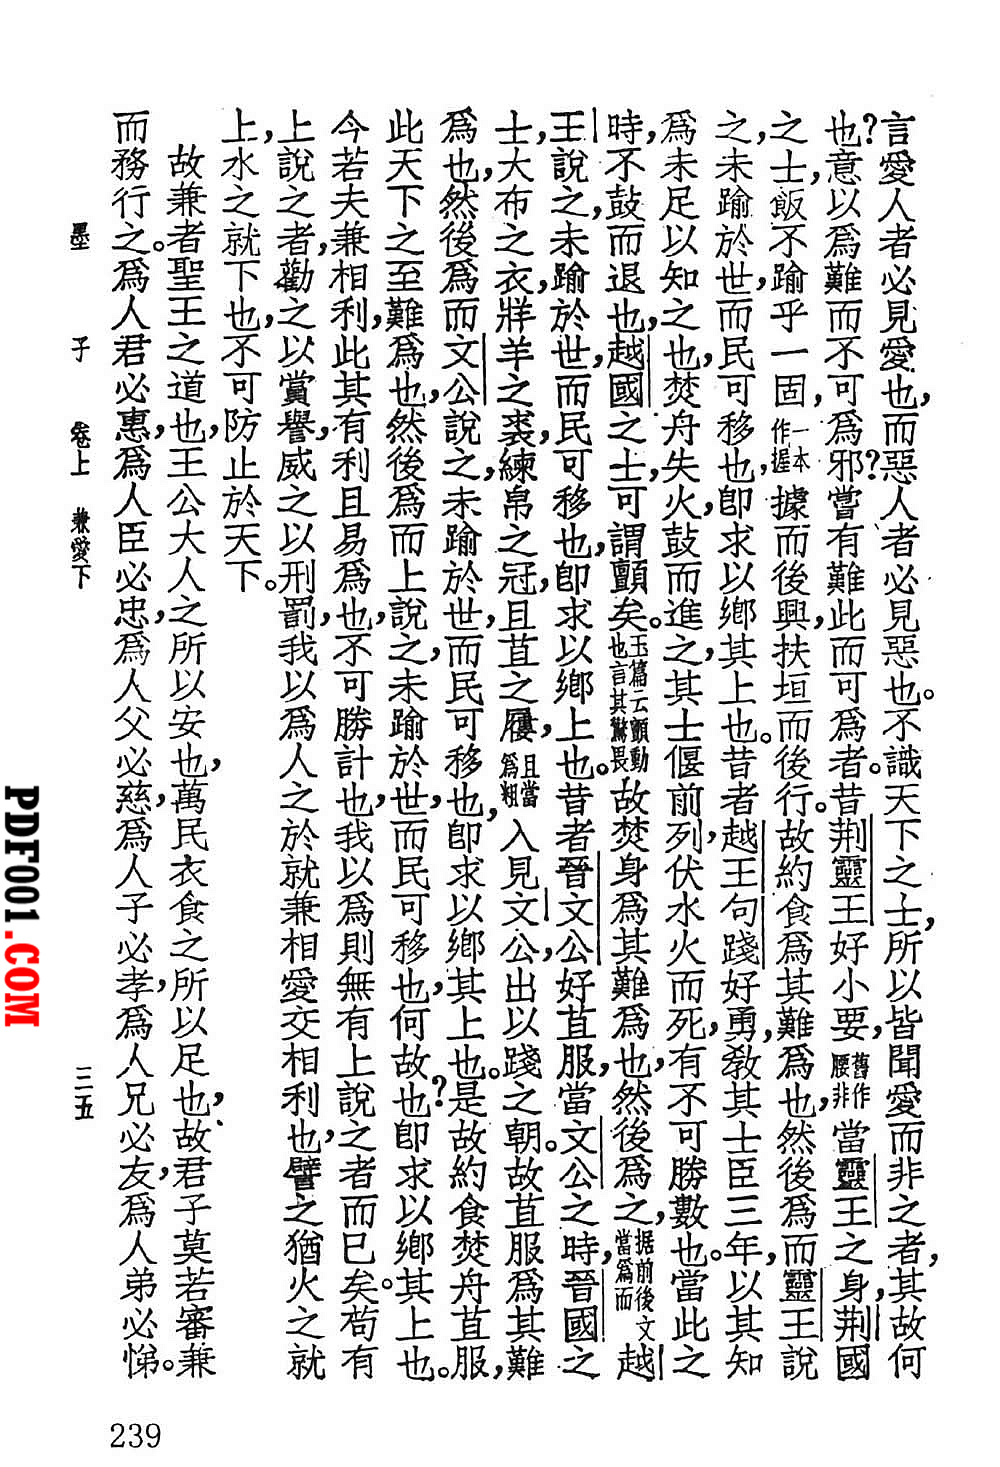 言愛人者必見愛也,而惡人者必見惡也。不識天下之士,所以皆聞愛而非之者,其故何
也?意以爲難而不可爲邪?嘗有難此而可爲者。昔荆靈王好小要,舊作腰非當靈王之身,荆國
之士,飯不踰乎一固,一本作握,據而後興,扶垣而後行。故約食爲其難爲也,然後爲而靈王說
之,未踰於世,而民可移也,卽求以鄉其上也。昔者越王句踐好勇,敎其士臣三年,以其知
爲未足以知之也,焚舟失火,鼓而進之,其士偃前列,伏水火而死,有不可勝數也。當此之
時,不鼓而退也,越國之士,可謂顫矣。玉篇云顫動也言其驚畏故焚身爲其難爲也,然後爲之,据前後文當爲而越
王說之,未踰於世,而民可移也,卽求以鄉上也。昔者晉文公好苴服,當文公之時,晉國之
士,大布之衣,牂羊之裘,練帛之冠,且苴之屨,且當爲粗入見文公,出以踐之朝。故苴服爲其難
爲也,然後爲而文公說之,未踰於世,而民可移也,卽求以鄉其上也。是故約食焚舟苴服,
此天下之至難爲也,然後爲而上說之,未踰於世,而民可移也,何故也?卽求以鄉其上也。
今若夫兼相利,此其有利且易爲也,不可勝計也,我以爲則無有上說之者而已矣。苟有
上說之者,勸之以賞譽,威之以刑罰,我以爲人之於就兼相愛交相利也,譬之猶火之就
上,水之就下也,不可防止於天下。
故兼者聖王之道也,王公大人之所以安也,萬民衣食之所以足也,故君子莫若審兼
而務行之。爲人君必惠,爲人臣必忠,爲人父必慈,爲人子必孝,爲人兄必友,爲人弟必悌。
墨子 卷上 兼愛下 三五
239
PDF001.COM